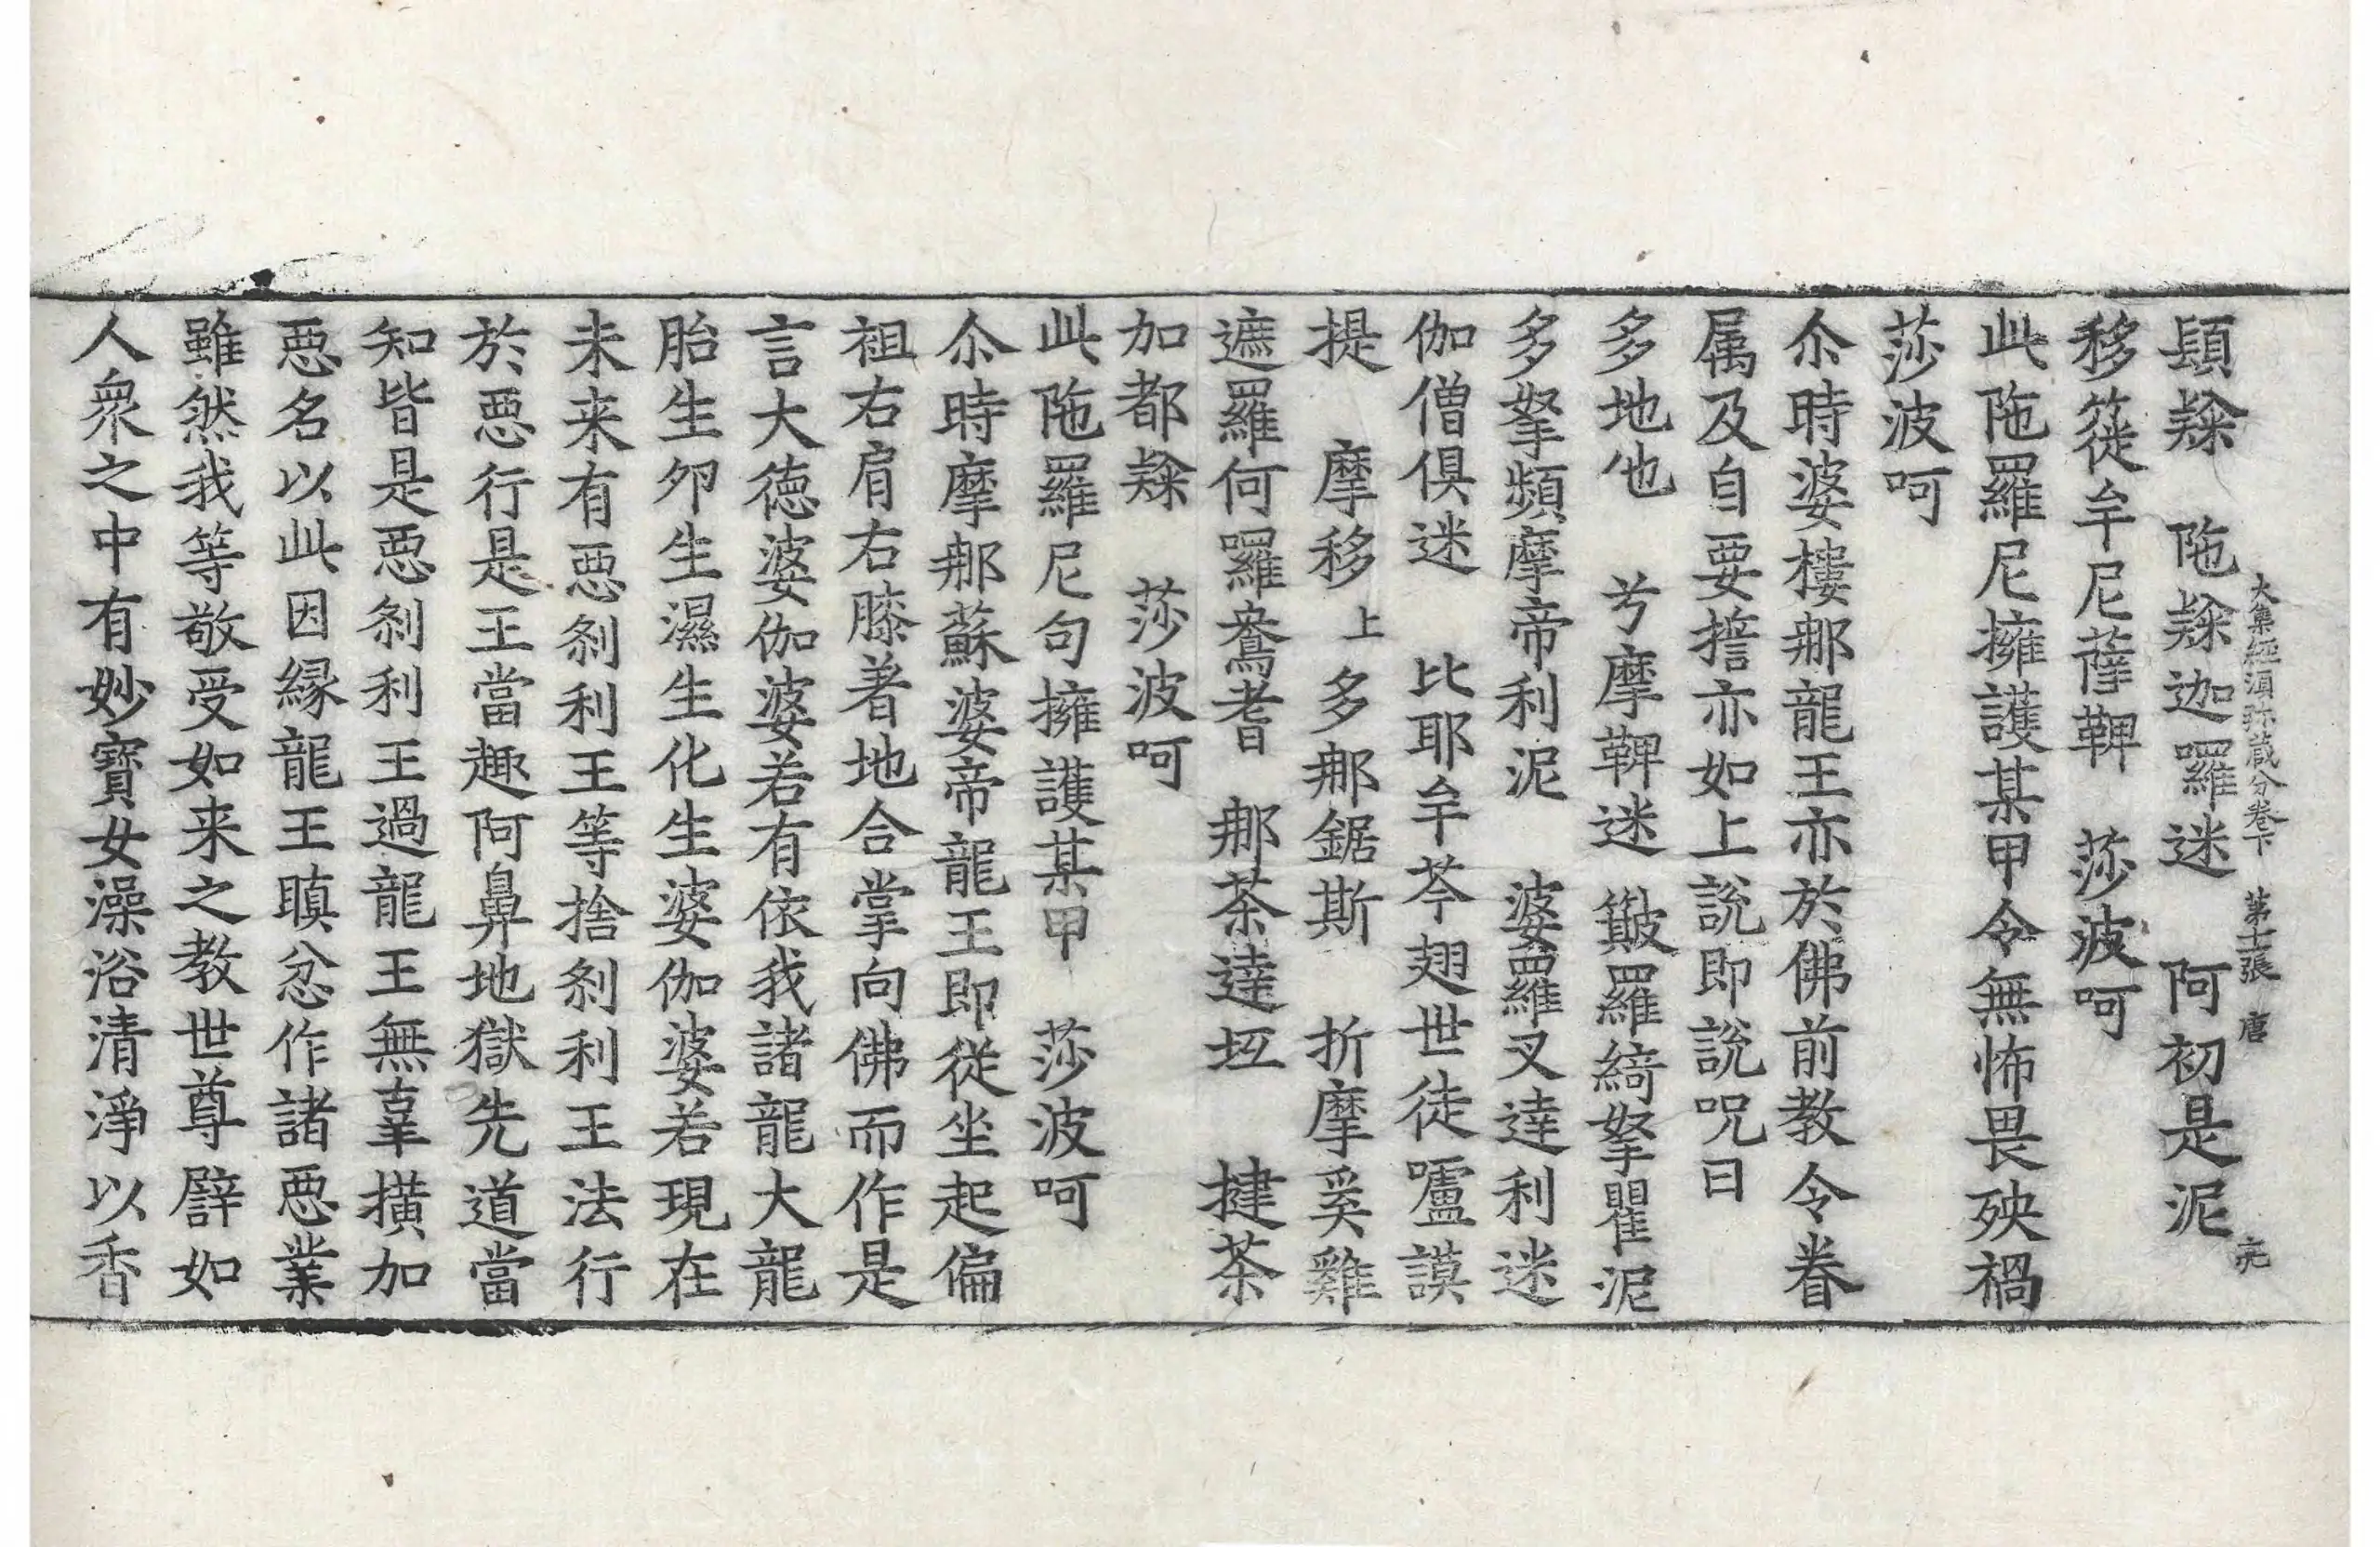 大集經湏弥蔵分卷下 第十一張 唐 完
頭㲚 陁㲚迦囉迷 阿初是泥
移簁牟尼薩鞞 莎波呵
此陁羅尼擁護某甲令無怖畏殃禍
莎波呵
尒時婆樓那龍王亦於佛前教令眷
属及自要誓亦如上說即說咒曰
多地他 兮摩鞞迷 簸羅綺拏瞿泥
多拏頻摩帝利泥 婆羅叉達利迷
伽僧俱迷 比耶牟芩翅世徒嚧謨
提 摩移上多那鋸斯 折摩奚雞
遮羅何囉鴦耆 那荼達坘 揵荼
加都㲚 莎波呵
此陁羅尼句擁護某甲 莎波呵
尒時摩那蘇婆帝龍王即從坐起偏
袒右肩右膝著地合掌向佛而作是
言大德婆伽婆若有依我諸龍大龍
胎生卵生濕生化生婆伽婆若現在
未来有惡剎利王等捨剎利王法行
於惡行是王當趣阿鼻地獄先道當
知皆是惡剎利王過龍王無辜橫加
惡名以此因緣龍王瞋忿作諸惡業
雖然我等敬受如来之教世尊譬如
人衆之中有妙寶女澡浴清淨以香